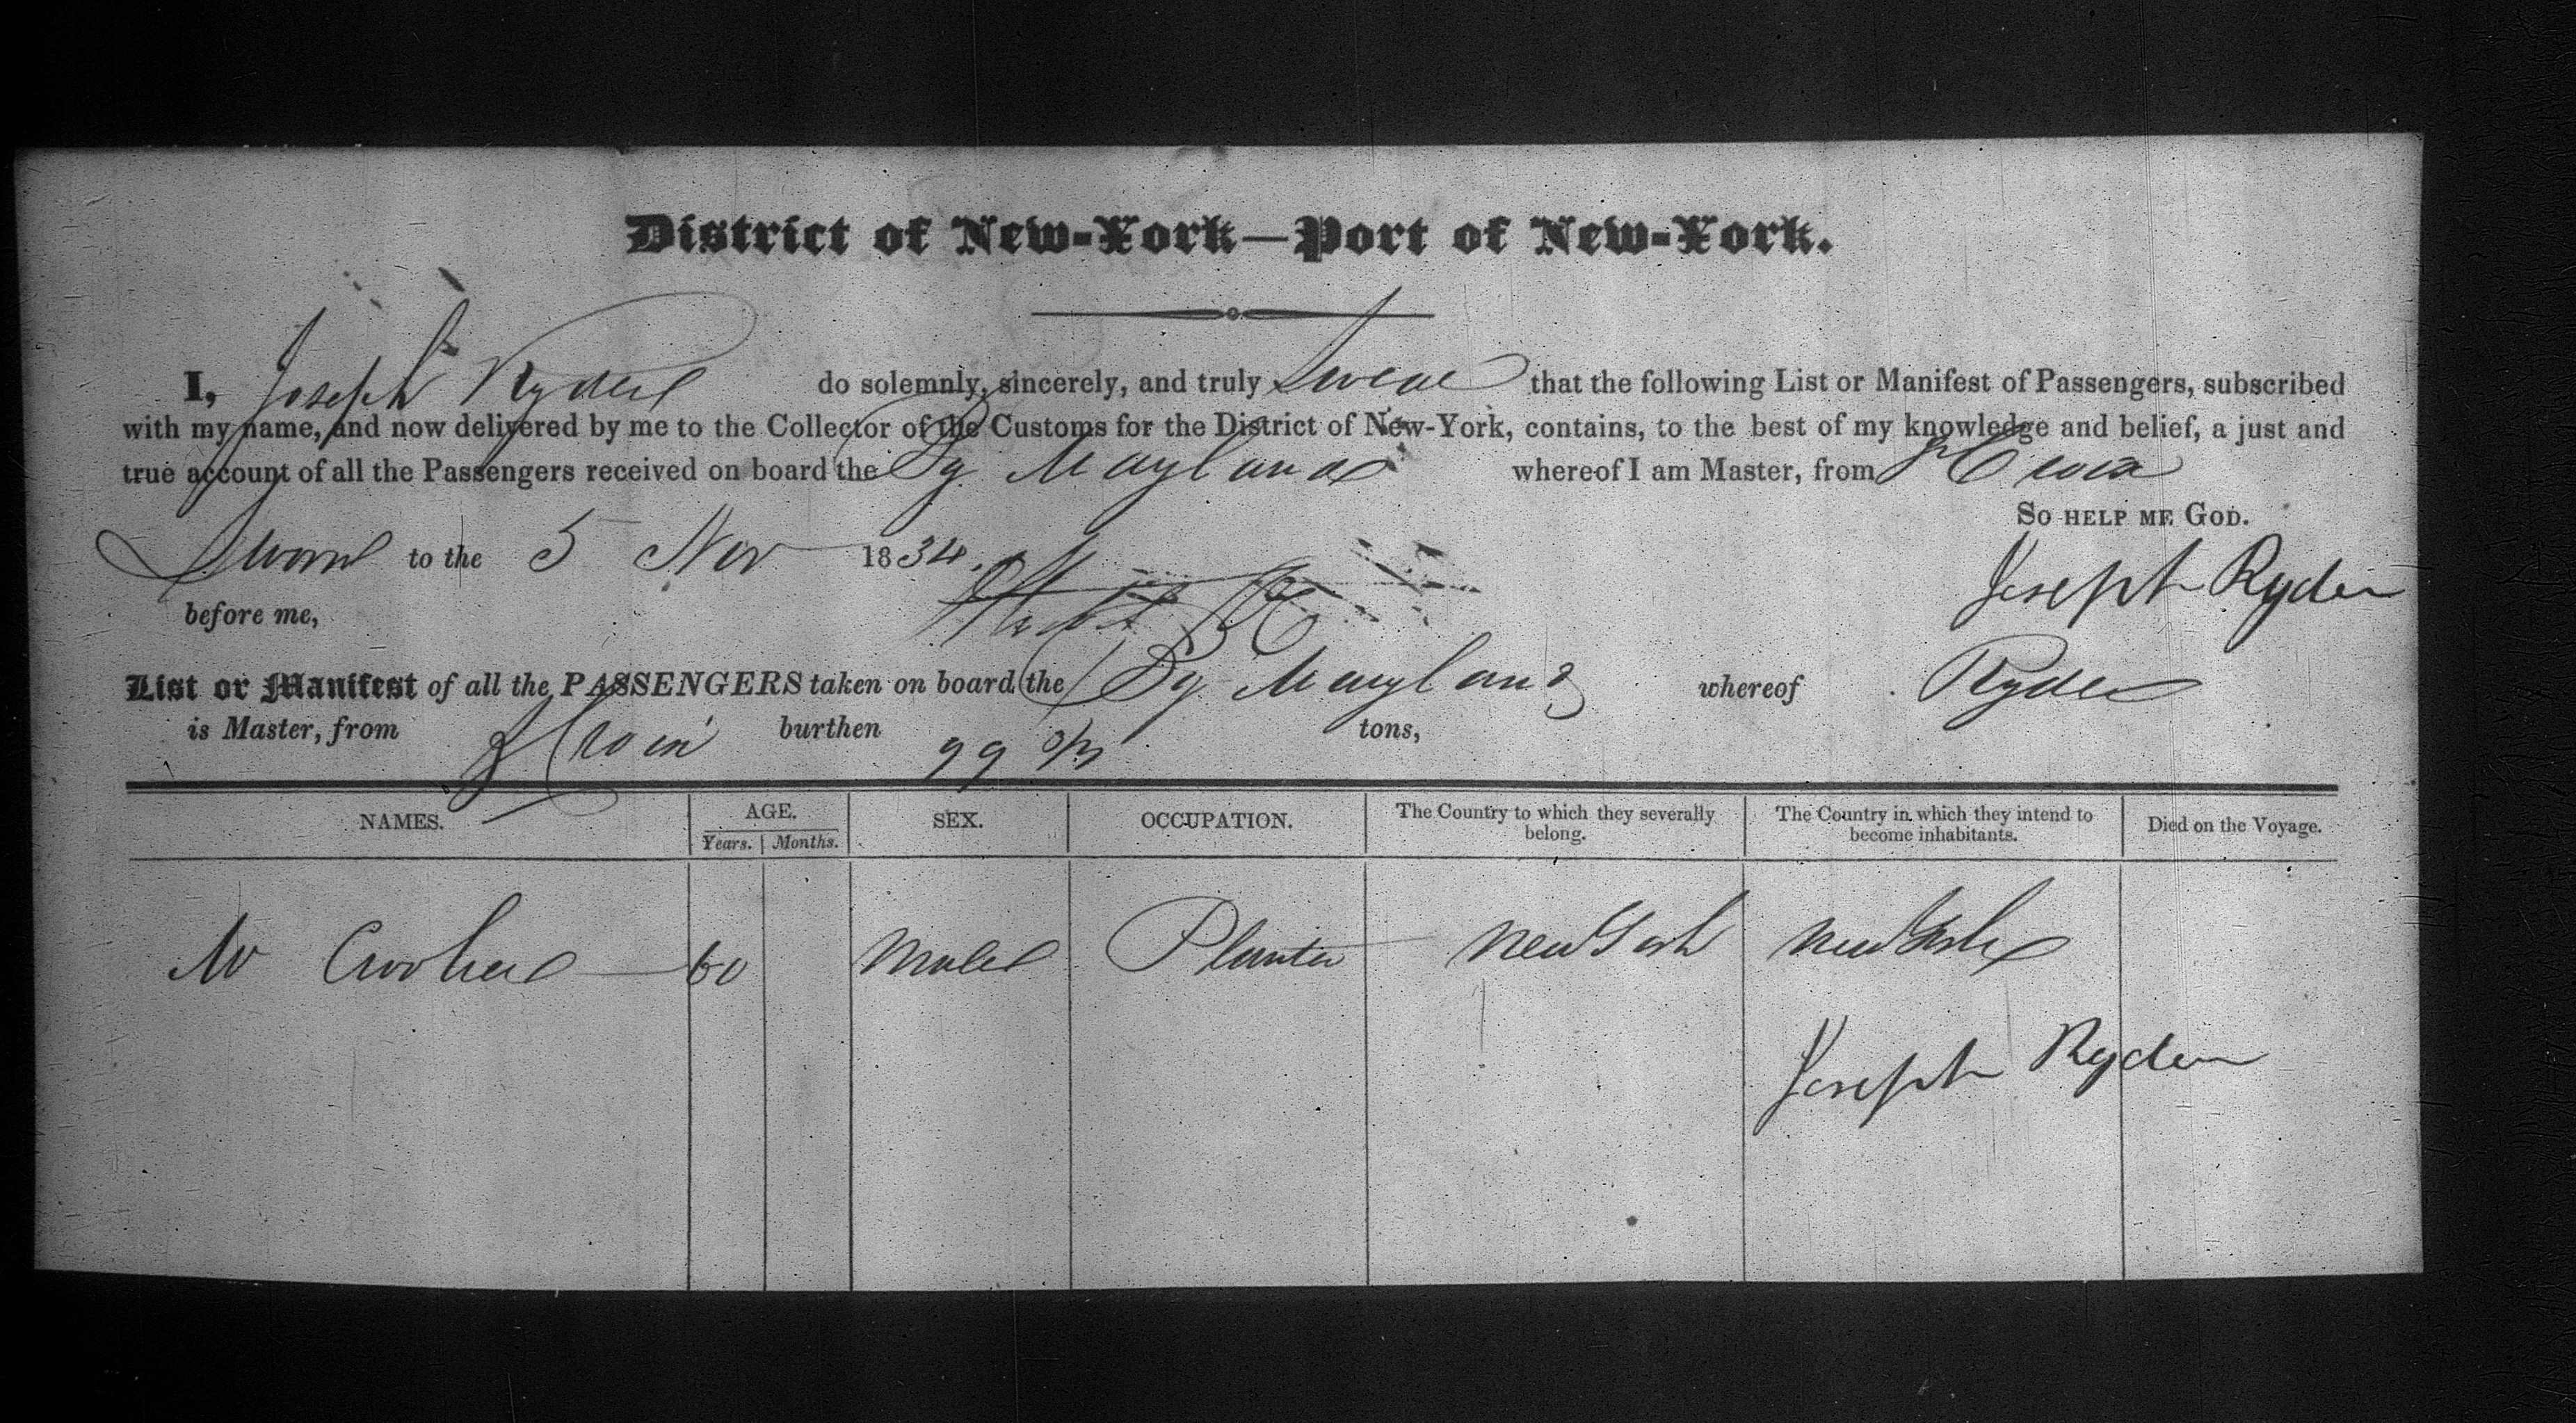 District of New-York—Port of New-York.
I, Joseph Ryder do solemnly, sincerely, and truly Swear that the following List or Manifest of Passengers, subscribed
with my name, and now delivered by me to the Collector of the Customs for the District of New-York, contains, to the best of my knowledge and belief, a just and
true account of all the Passengers received on board the Bg Maryland whereof I am Master, from St Croix
SO HELP ME GOD.
Sworn to the 5 Nov 1834.
before me,
Joseph Ryder
List or Manifest of all the PASSENGERS taken on board the Bg Maryland whereof Ryder
is Master, from St Croix burthen 99 tons,
NAMES. AGE. SEX. OCCUPATION. The Country to which they severally belong. The Country in which they intend to become inhabitants. Died on the Voyage.
Years. Months.
60 Male Planter New York New York
Joseph Ryder